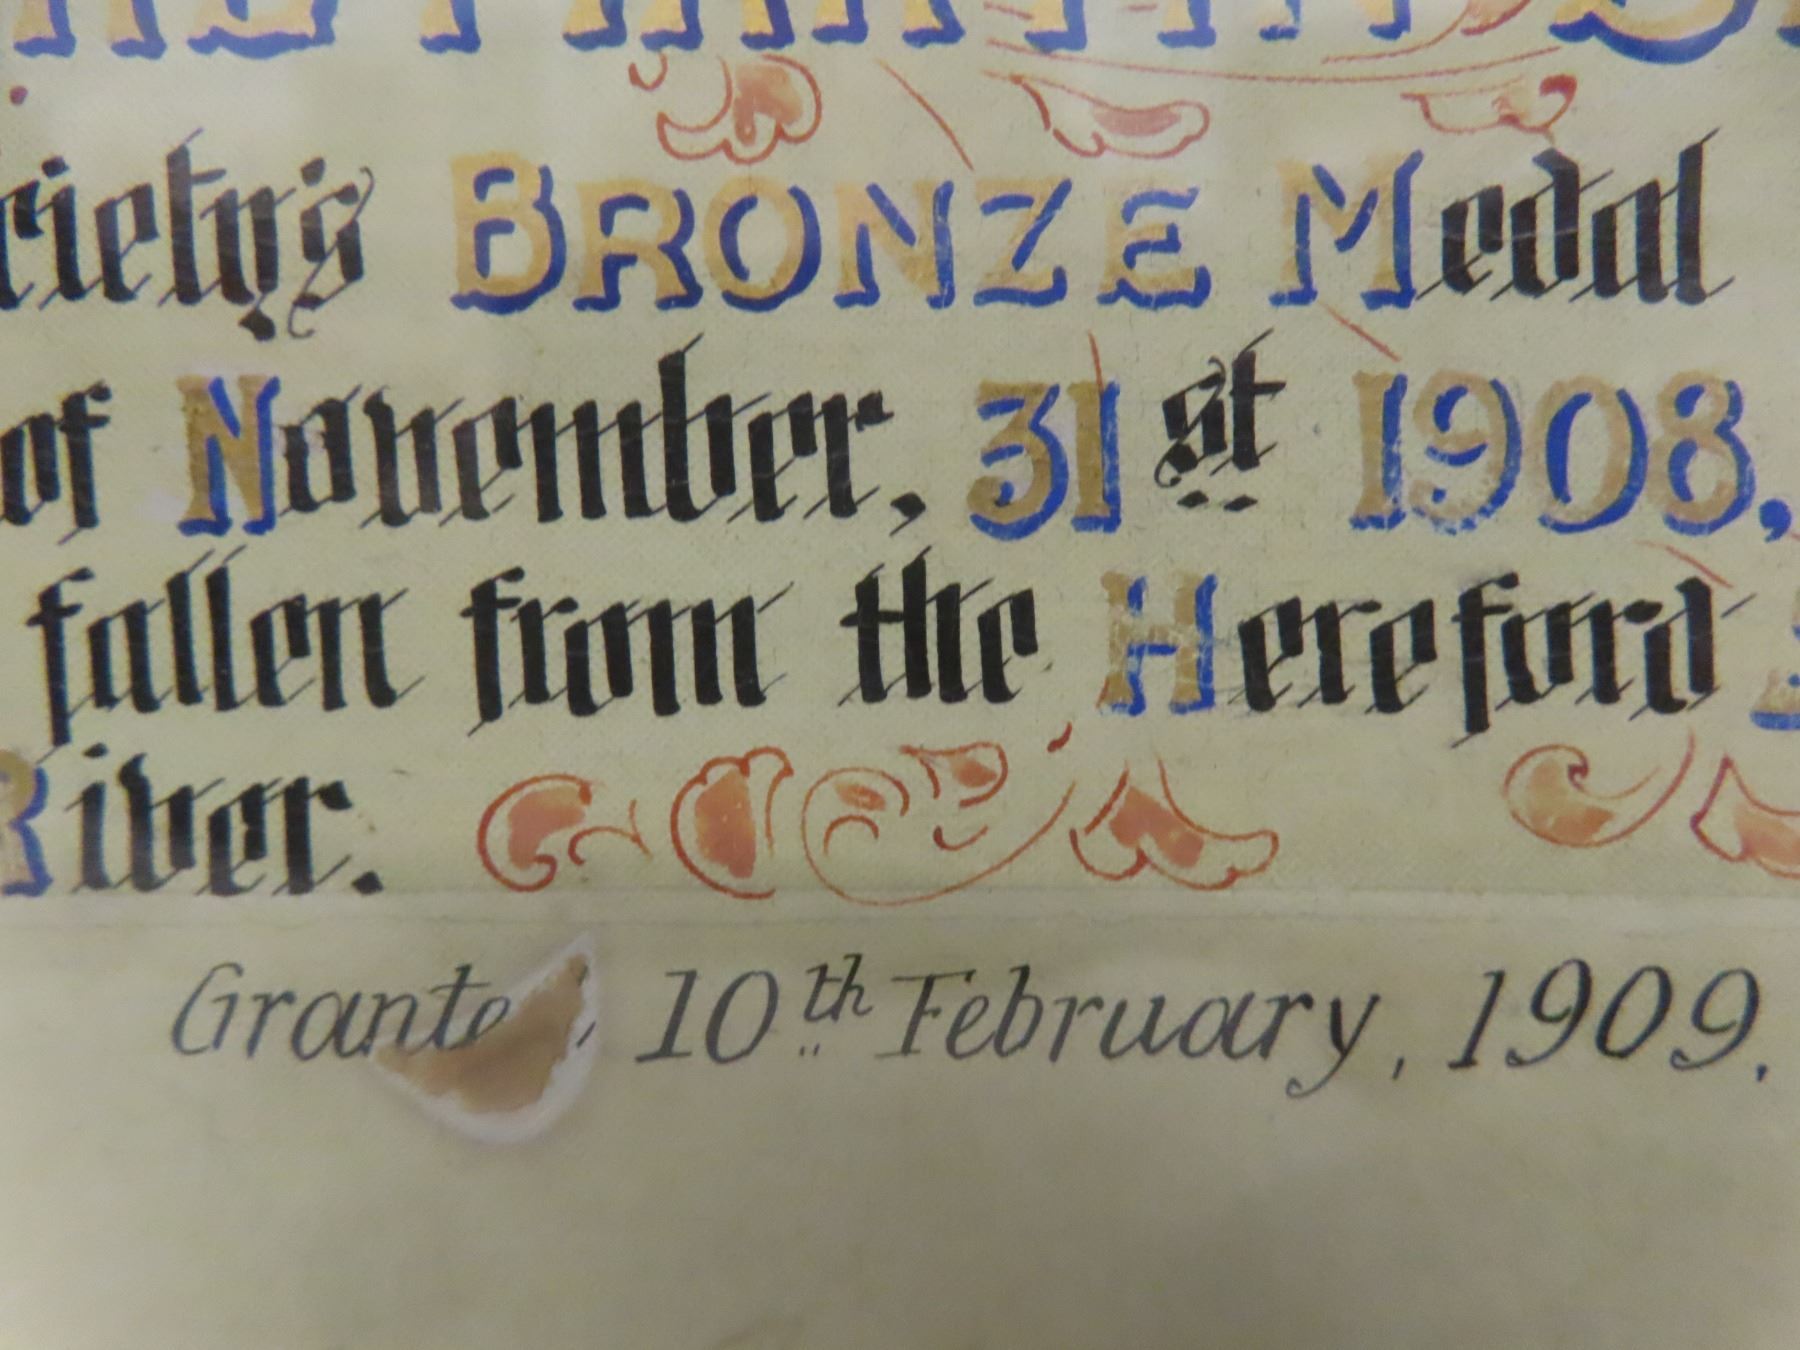 ciety's BRONZE Medal
of November, 31st 1908,
fallen from the Hereford
River.
Grante, 10th February, 1909.